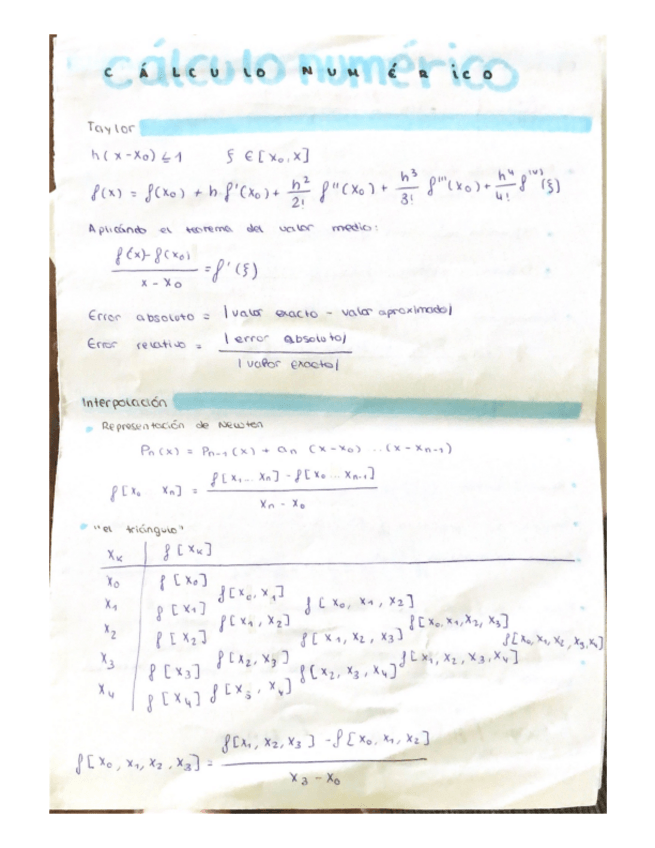 cálculo numérico
CÁLCULO NUMÉRICO
Taylor
h(x-x₀) ≤ 1 ξ ∈ [x₀, x]
f(x) = f(x₀) + h f'(x₀) + h²/2! f''(x₀) + h³/3! f'''(x₀) + h⁴/4! f⁽ⁱᵛ⁾(ξ)
Aplicando el teorema del valor medio:
f(x)-f(x₀) / x - x₀ = f'(ξ)
Error absoluto = |valor exacto - valor aproximado|
Error relativo = |error absoluto| / |valor exacto|
Interpolación
Representación de Newton
Pn(x) = Pn-1(x) + an (x-x₀) ..(x-xn-1)
f[x₀ xn] = f[x₁...xn] - f[x₀...xn-1] / xn - x₀
"el triángulo"
xk f[xk]
x₀ f[x₀]
f[x₀, x₁]
x₁ f[x₁] f[x₀, x₁, x₂]
f[x₁, x₂] f[x₀, x₁, x₂, x₃]
x₂ f[x₂] f[x₁, x₂, x₃] f[x₀, x₁, x₂, x₃, x₄]
f[x₂, x₃] f[x₁, x₂, x₃, x₄]
x₃ f[x₃] f[x₂, x₃, x₄]
f[x₃, x₄]
x₄ f[x₄]
f[x₀, x₁, x₂, x₃] = f[x₁, x₂, x₃] - f[x₀, x₁, x₂] / x₃ - x₀